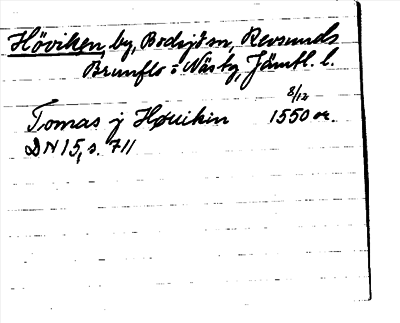 Höviken, by, Bodsjö sn, Revsunds
Brunflo o Näsby, Jämtl. l.
8/12
Tomas j Høuikin 1550 or.
DN 15, s. 711